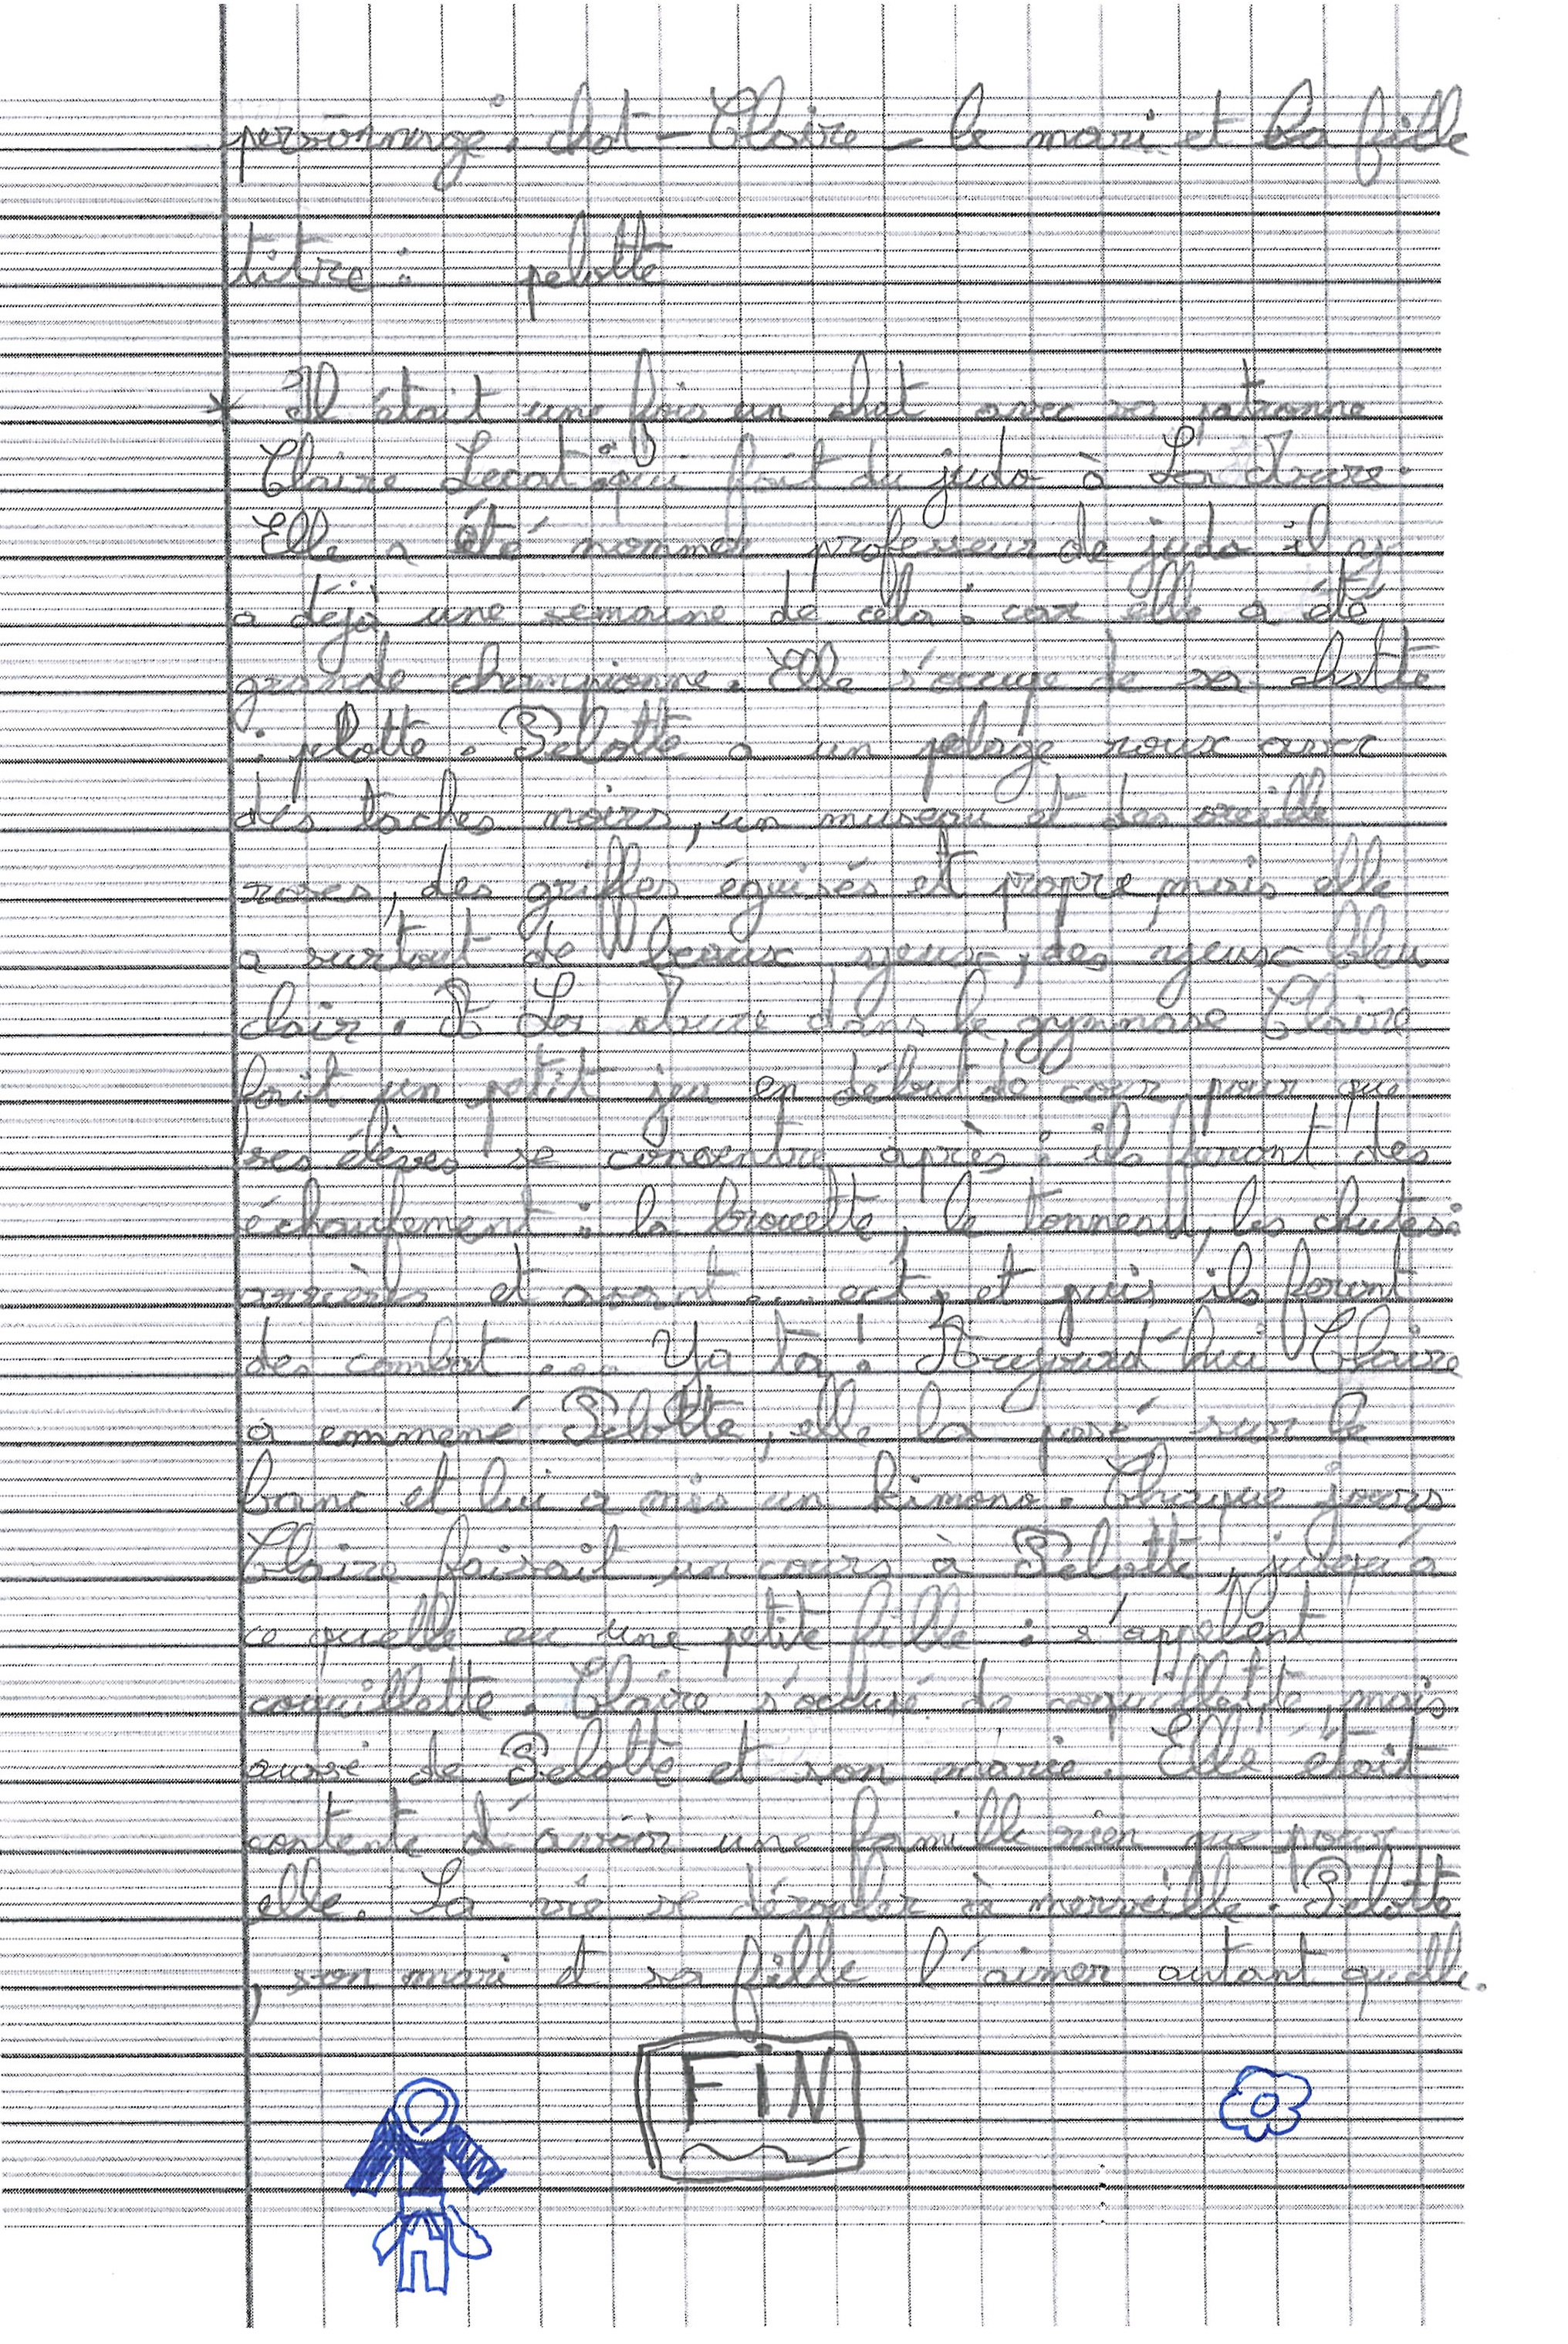 personnage : chat - Claire - le mari et la fille
titre : pelotte
* Il était une fois un chat avec sa patronne
Claire Lecat : qui fait du judo à La
Elle a été nommer professeur de judo il y
a déjà une semaine de cela : car elle a été
grande championne. Elle s'occupe de sa chatte
: plotte. Pelotte a un pelage roux avec
des taches noirs, un museau et des oreille
roses, des griffes éguisés et propre mais elle
a surtout de beaux yeux, des yeux bleu
clair. A La dans le gymnase Claire
fait un petit jeu en début de cour pour que
ses élèves se concentre après : ils feront des
échaufement : la brouette, le tonneau, les chutes :
arrières et avant ... ect, et puis ils feront
des combat ... Ya ta ! Aujourd'hui Claire
a emmené Pelotte, elle la posé sur le
banc et lui a mis un kimono. Chaque jours
Claire faisait un cours à Pelotte, jusqu'à
ce quelle eu une petite fille : s'appelent
coquillette. Claire s'occupé de coquillette, mais
aussi de Pelotte et son marie. Elle était
contente d'avoir une famille rien que pour
elle. La vie se dérouler à merveille. Pelotte
, son mari et sa fille l'aimer autant quelle.
FiN